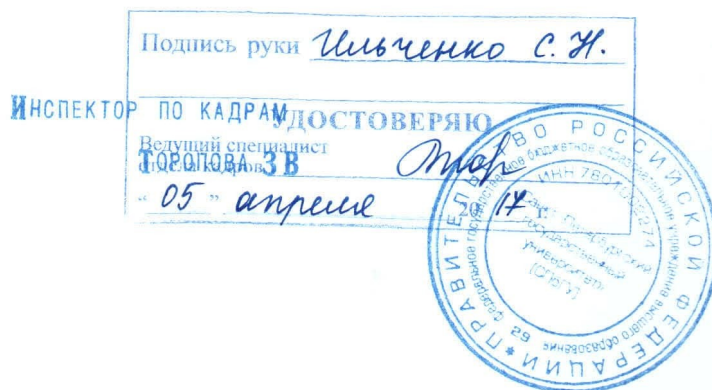 Подпись руки Ильченко С. Н.
ИНСПЕКТОР ПО КАДРАМ
УДОСТОВЕРЯЮ
Ведущий специалист
отдела кадров
ТОРОПОВА З В
" 05 " апреля 20 17 г.
* ПРАВИТЕЛЬСТВО РОССИЙСКОЙ ФЕДЕРАЦИИ
федеральное государственное бюджетное образовательное учреждение высшего образования
29
ИНН
Санкт-Петербургский
государственный
университет
(СПбГУ)